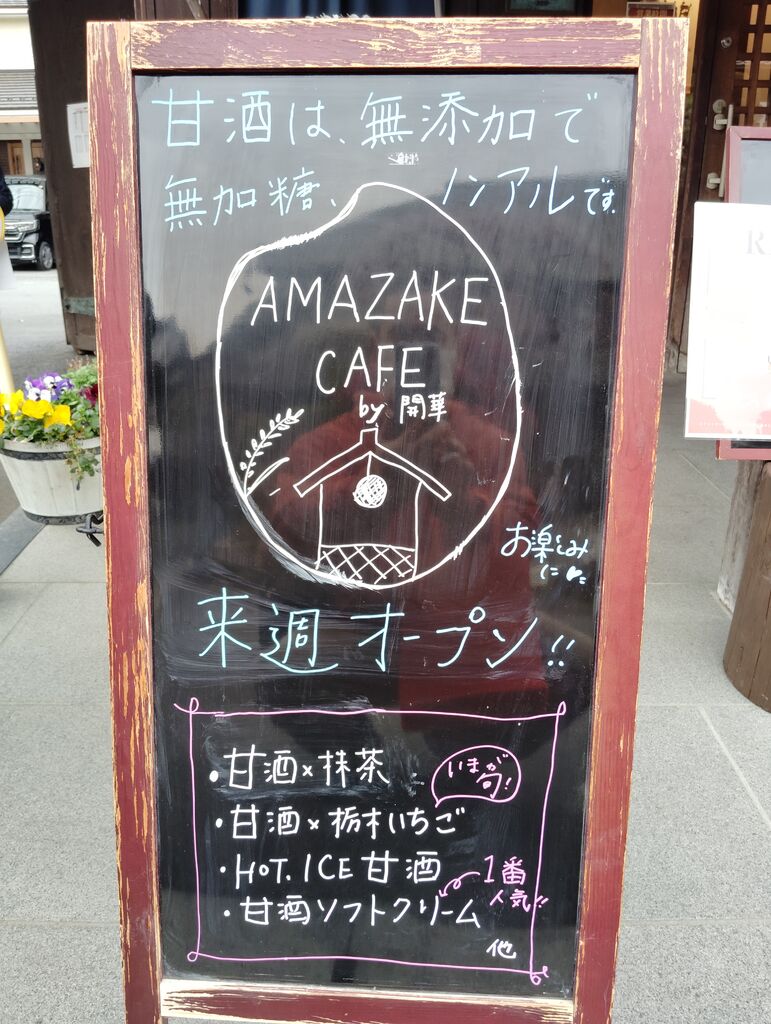 甘酒は、無添加で
無加糖、ノンアルです。
AMAZAKE
CAFE
by 開華
お楽しみ
に
来週オープン!!
・甘酒×抹茶
いまが
旬!
・甘酒×栃木いちご
・HOT. ICE 甘酒
・甘酒ソフトクリーム
1番
人気!!
他
R